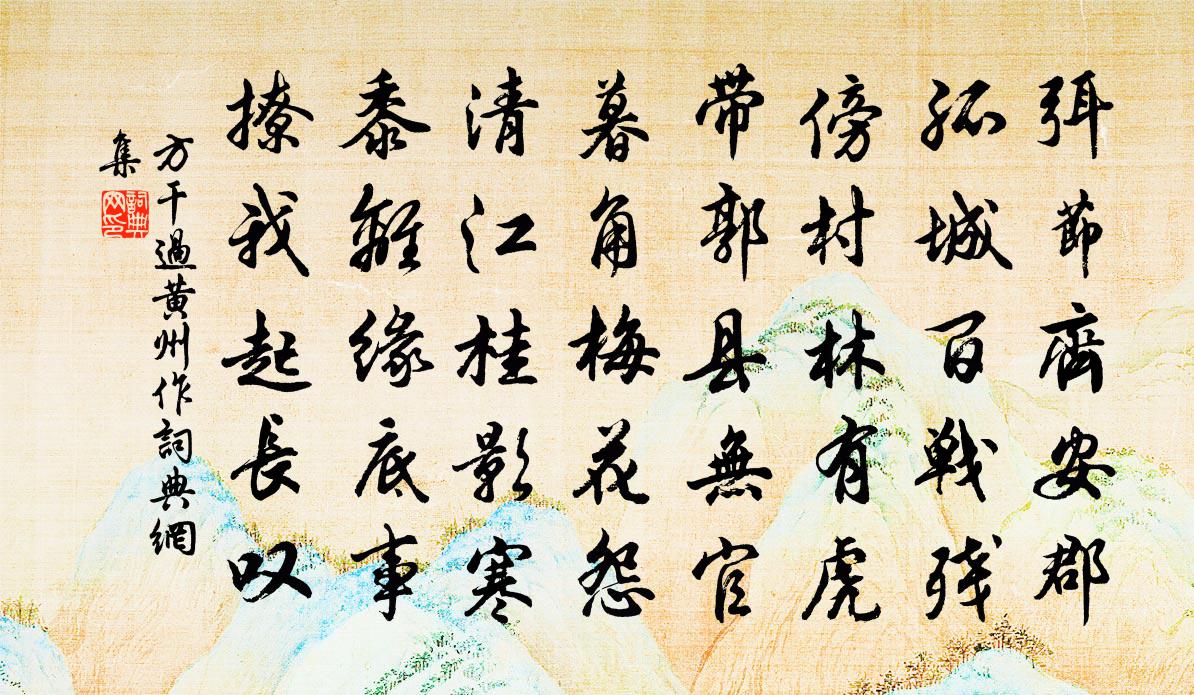 弭節齊安郡
孤城百戦残
傍村林有虎
带郭县無官
暮角梅花怨
清江桂影寒
黍離緣底事
撩我起長叹
方干過黄州作詞典網
集
詞典
网印